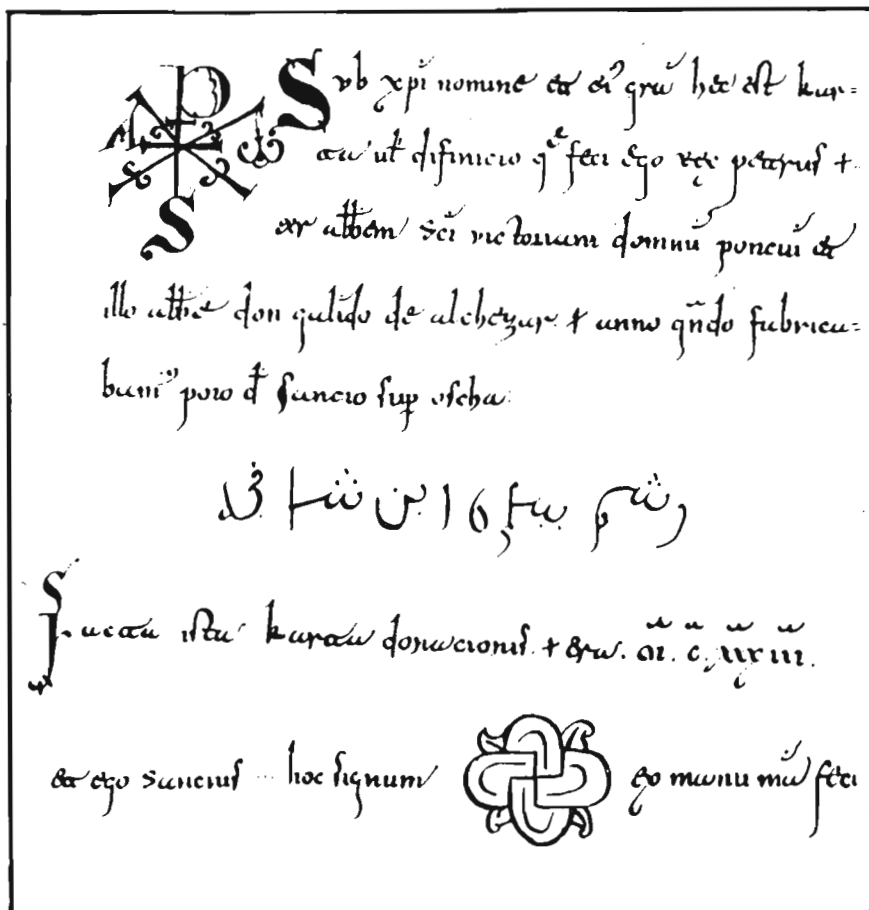 Sub xpi nomine et ei' gra hec est kar=
ta ul difinicio qe feci ego rex petrus +
abbem sci victoriani domnu poncui et
illo abbe don galido de alchezar + anno qndo fabrica=
bam' poio d sancio sup oscha
رشم بيطره ابن شانجه
Facta ista karta donacionis + era. m. c. xxx iii.
et ego sancius hoc signum manu ma feci